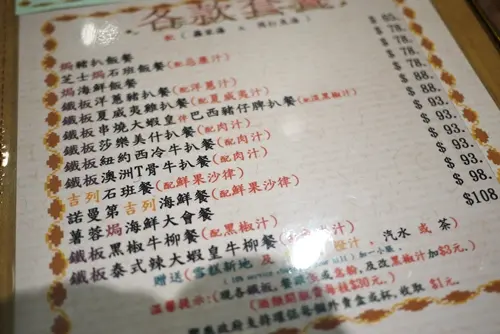 各款套餐
焗豬扒飯餐
芝士焗石班飯餐(配忌廉汁)
焗海鮮飯餐
鐵板洋蔥豬扒餐(配洋蔥汁)
鐵板夏威夷雞扒餐(配夏威夷汁)
鐵板串燒大蝦皇伴巴西豬仔脾扒餐(配黑椒汁)
鐵板莎樂美什扒餐(配肉汁)
鐵板紐約西冷牛扒餐(配肉汁)
鐵板澳洲T骨牛扒餐(配肉汁)
吉列石班餐(配鮮果沙律)
諾曼第吉列海鮮餐(配鮮果沙律)
薯蓉焗海鮮大會餐
鐵板黑椒牛柳餐(配黑椒汁)
鐵板泰式辣大蝦皇牛柳餐
贈送(雪糕新地 及 橙汁、汽水 或 茶)
溫馨提示:(現各鐵板, 餐飽多或意粉, 及改黑椒汁加$3元。)
(酒類開瓶費每枝$30元。)
每個外賣盒或杯, 收取 $1元。
$ 65.
$ 78.
$ 78.
$ 78.
$ 88.
$ 93.
$ 93.
$ 93.
$ 93.
$ 98.
$108